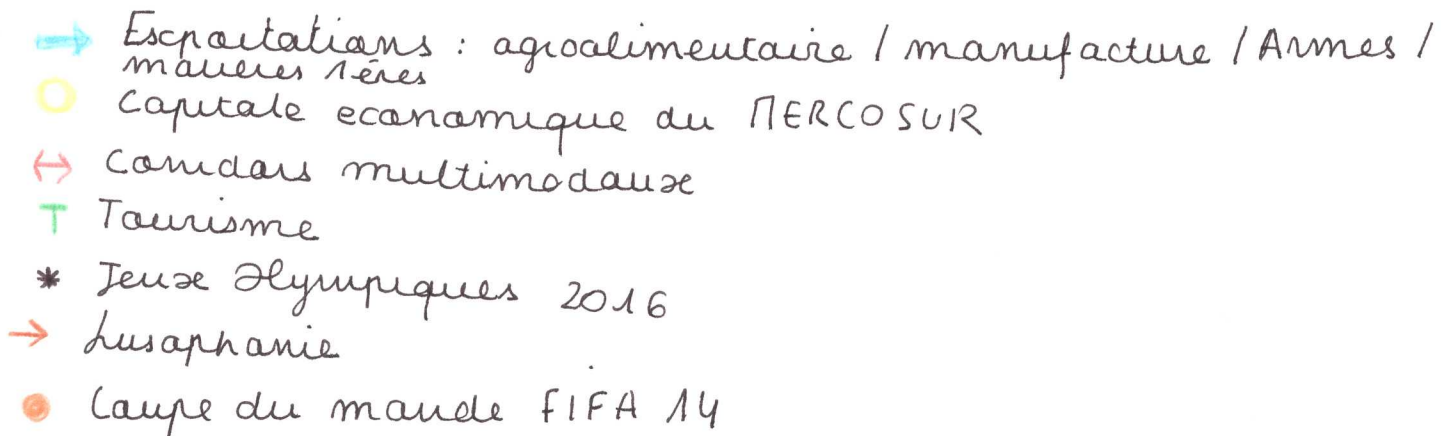 Exportations : agroalimentaire / manufacture / Armes /
matieres 1ères
Capitale economique du MERCOSUR
Corridors multimodaux
T Tourisme
* Jeux Olympiques 2016
Lusophonie
Coupe du monde FIFA 14